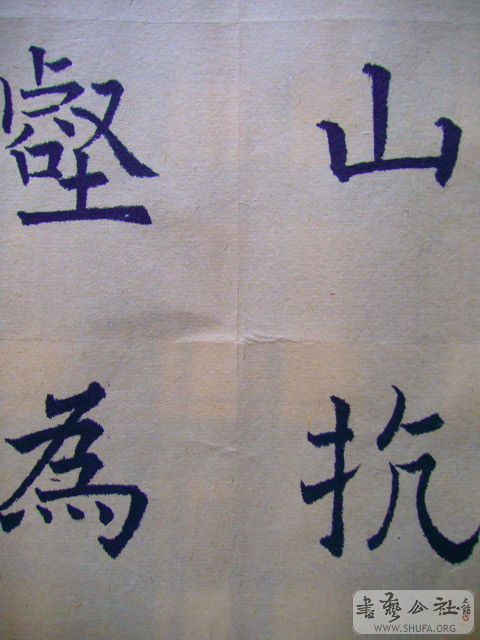 山抗
壑為
書藝公社
WWW.SHUFA.ORG